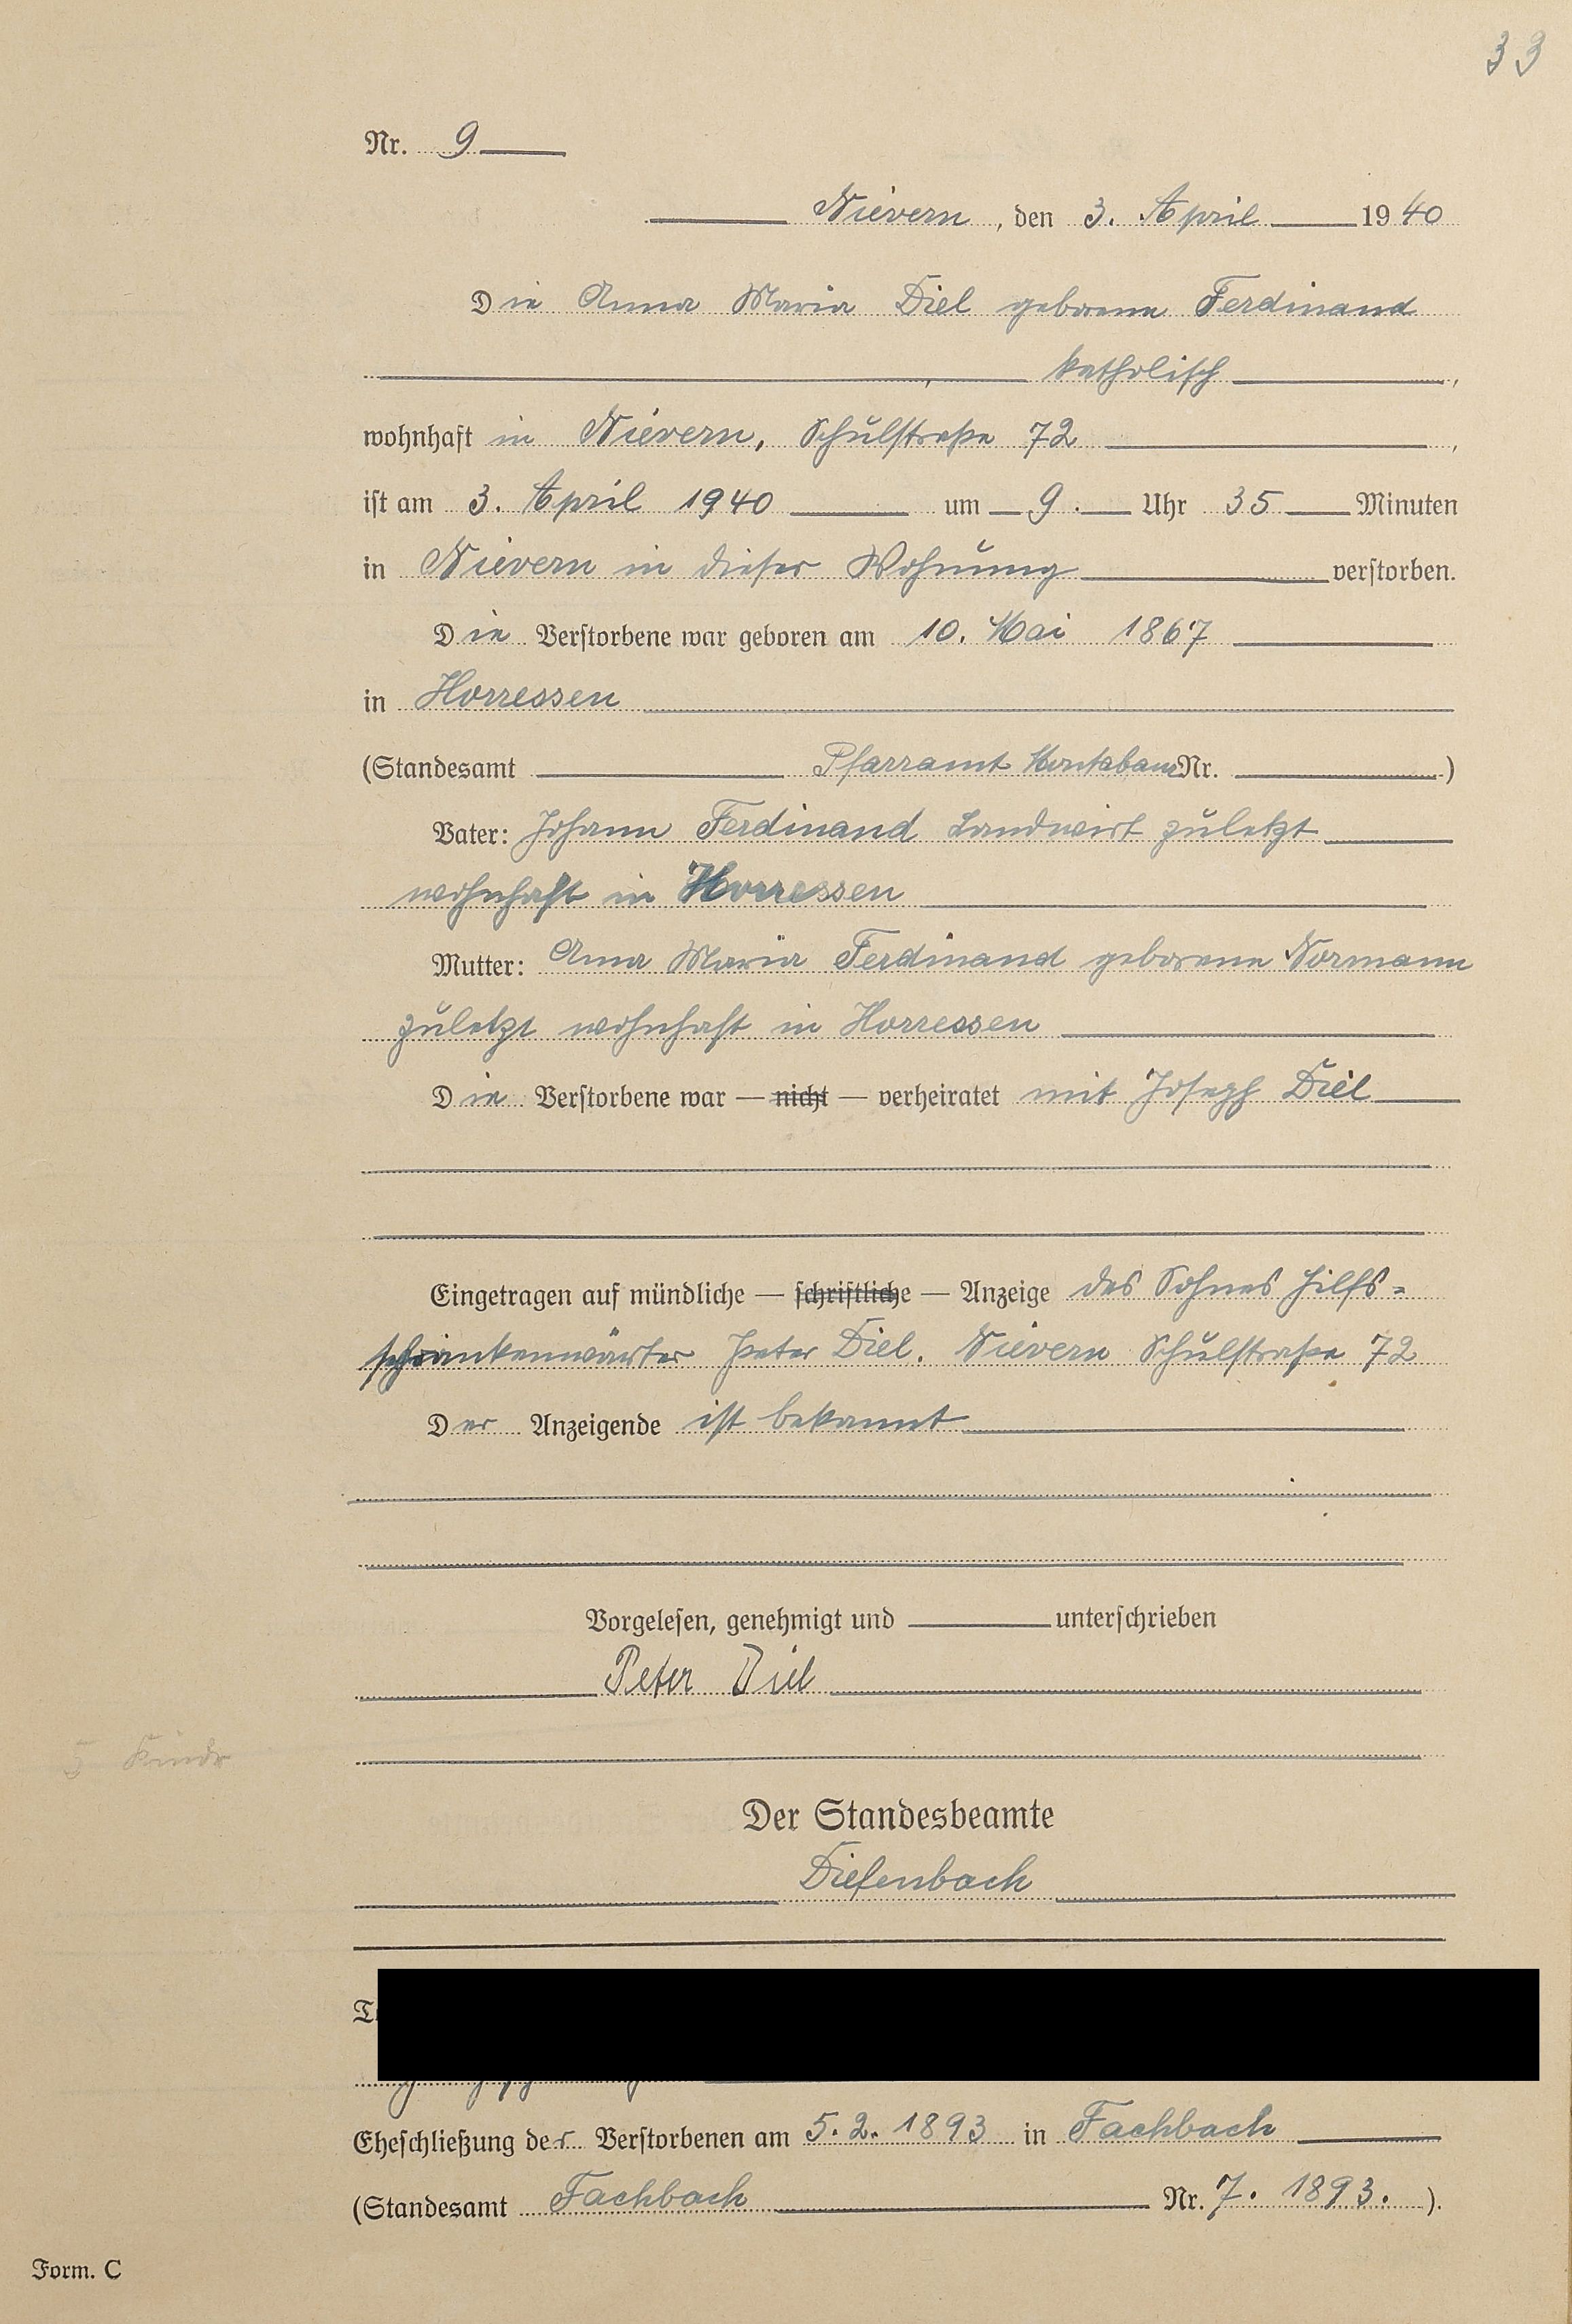 33
Nr. 9
Nievern, den 3. April 1940
Die Anna Maria Diel geborene Ferdinand
, katholisch ,
wohnhaft in Nievern, Schulstraße 72 ,
ist am 3. April 1940 um 9. Uhr 35 Minuten
in Nievern in dieser Wohnung verstorben.
Die Verstorbene war geboren am 10. Mai 1867
in Horressen
(Standesamt Pfarramt Montabaur Nr. )
Vater: Johann Ferdinand Landwirt zuletzt
wohnhaft in Horressen
Mutter: Anna Maria Ferdinand geborene Normann
zuletzt wohnhaft in Horressen
Die Verstorbene war — nicht — verheiratet mit Joseph Diel
Eingetragen auf mündliche — schriftliche — Anzeige des Sohnes Hilfs=
schrankenwärter Peter Diel. Nievern Schulstraße 72
Der Anzeigende ist bekannt
Vorgelesen, genehmigt und unterschrieben
Peter Diel
5 Kinder
Der Standesbeamte
Diefenbach
Eheschließung der Verstorbenen am 5.2.1893 in Fachbach
(Standesamt Fachbach Nr. 7. 1893. ).
Form. C